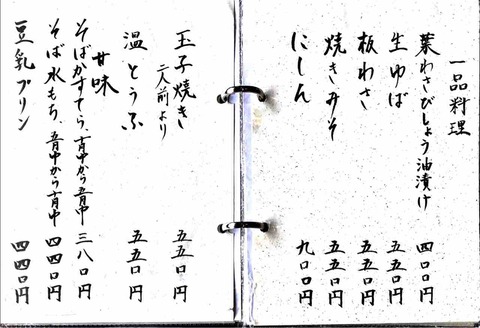 一品料理
葉わさびしょう油漬け 四〇〇円
生ゆば 五五〇円
板わさ 五五〇円
焼きみそ 五五〇円
にしん 九〇〇円
玉子焼き 五五〇円
二人前より
温とうふ 五五〇円
甘味
そばかすてら、十月中から五月中 三八〇円
そば水もち、五月中から十月中 四四〇円
豆乳プリン 四四〇円